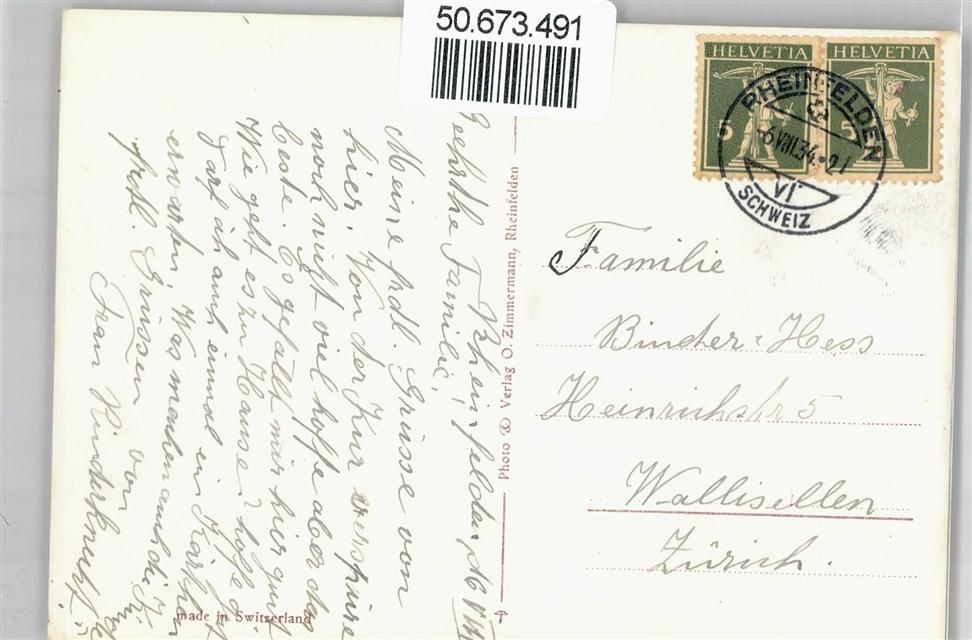 50.673.491
HELVETIA HELVETIA
5 5
RHEINFELDEN
-6.VIII.34.-21
VI
SCHWEIZ
Rheinfelden, d. 6. VIII.
Geehrte Familie,
Meine frdl. Grüsse von
hier. Von der Kur verspüre
noch nicht viel hoffe aber das
beste. Es gefällt mir hier gut
Wie geht es zu Hause? hoffe
darf ich auch einmal ein Kärtchen
erwarten. Was machen auch die
frdl. Grüssen von
Frau Rinderknecht
Photo & Verlag O. Zimmermann, Rheinfelden
made in Switzerland
Familie
Binder-Hess
Heinrichstr 5
Wallisellen
Zürich.